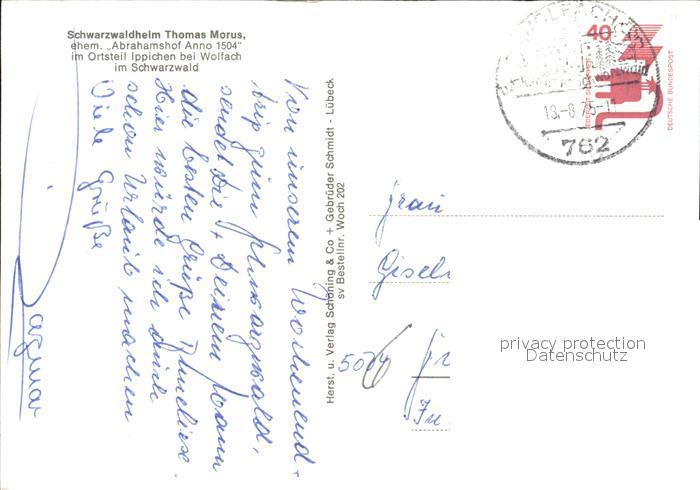 Schwarzwaldheim Thomas Morus,
ehem. „Abrahamshof Anno 1504"
im Ortsteil Ippichen bei Wolfach
im Schwarzwald
Von unserem Wochenend-
trip zum Schwarzwald,
sendet Dir + Deinem Mann
die besten Grüße Anneliese.
Hier würde ich auch
schon Urlaub machen
Viele Grüße
Dagmar
Herst. u. Verlag Schöning & Co + Gebrüder Schmidt - Lübeck
sv Bestellnr. Woch 202
WOLFACH
18.-8.75-
762
40
DEUTSCHE BUNDESPOST
Frau
Gisel
privacy protection
Datenschutz